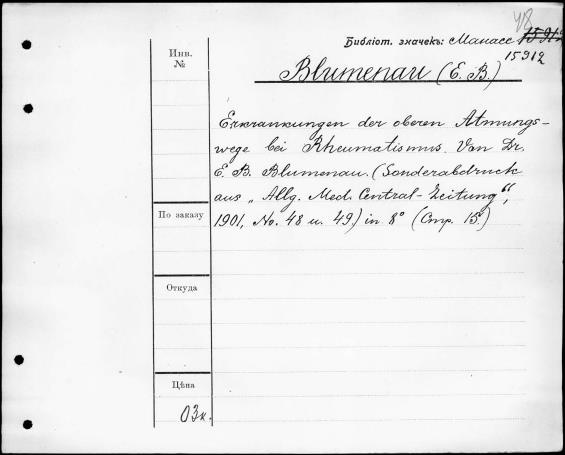 48
Библіот. значекъ: Манасс 15912
15312
Инв.
№
Blumenau (E. B.)
Erkrankungen der oberen Atmungs-
wege bei Rheumatismus. Von Dr.
E. B. Blumenau. (Sonderabdruck
aus „Allg. Med. Central-Zeitung“,
1901, No. 48 u. 49) in 8° (Стр. 15.)
По заказу
Откуда
Цѣна
03к.